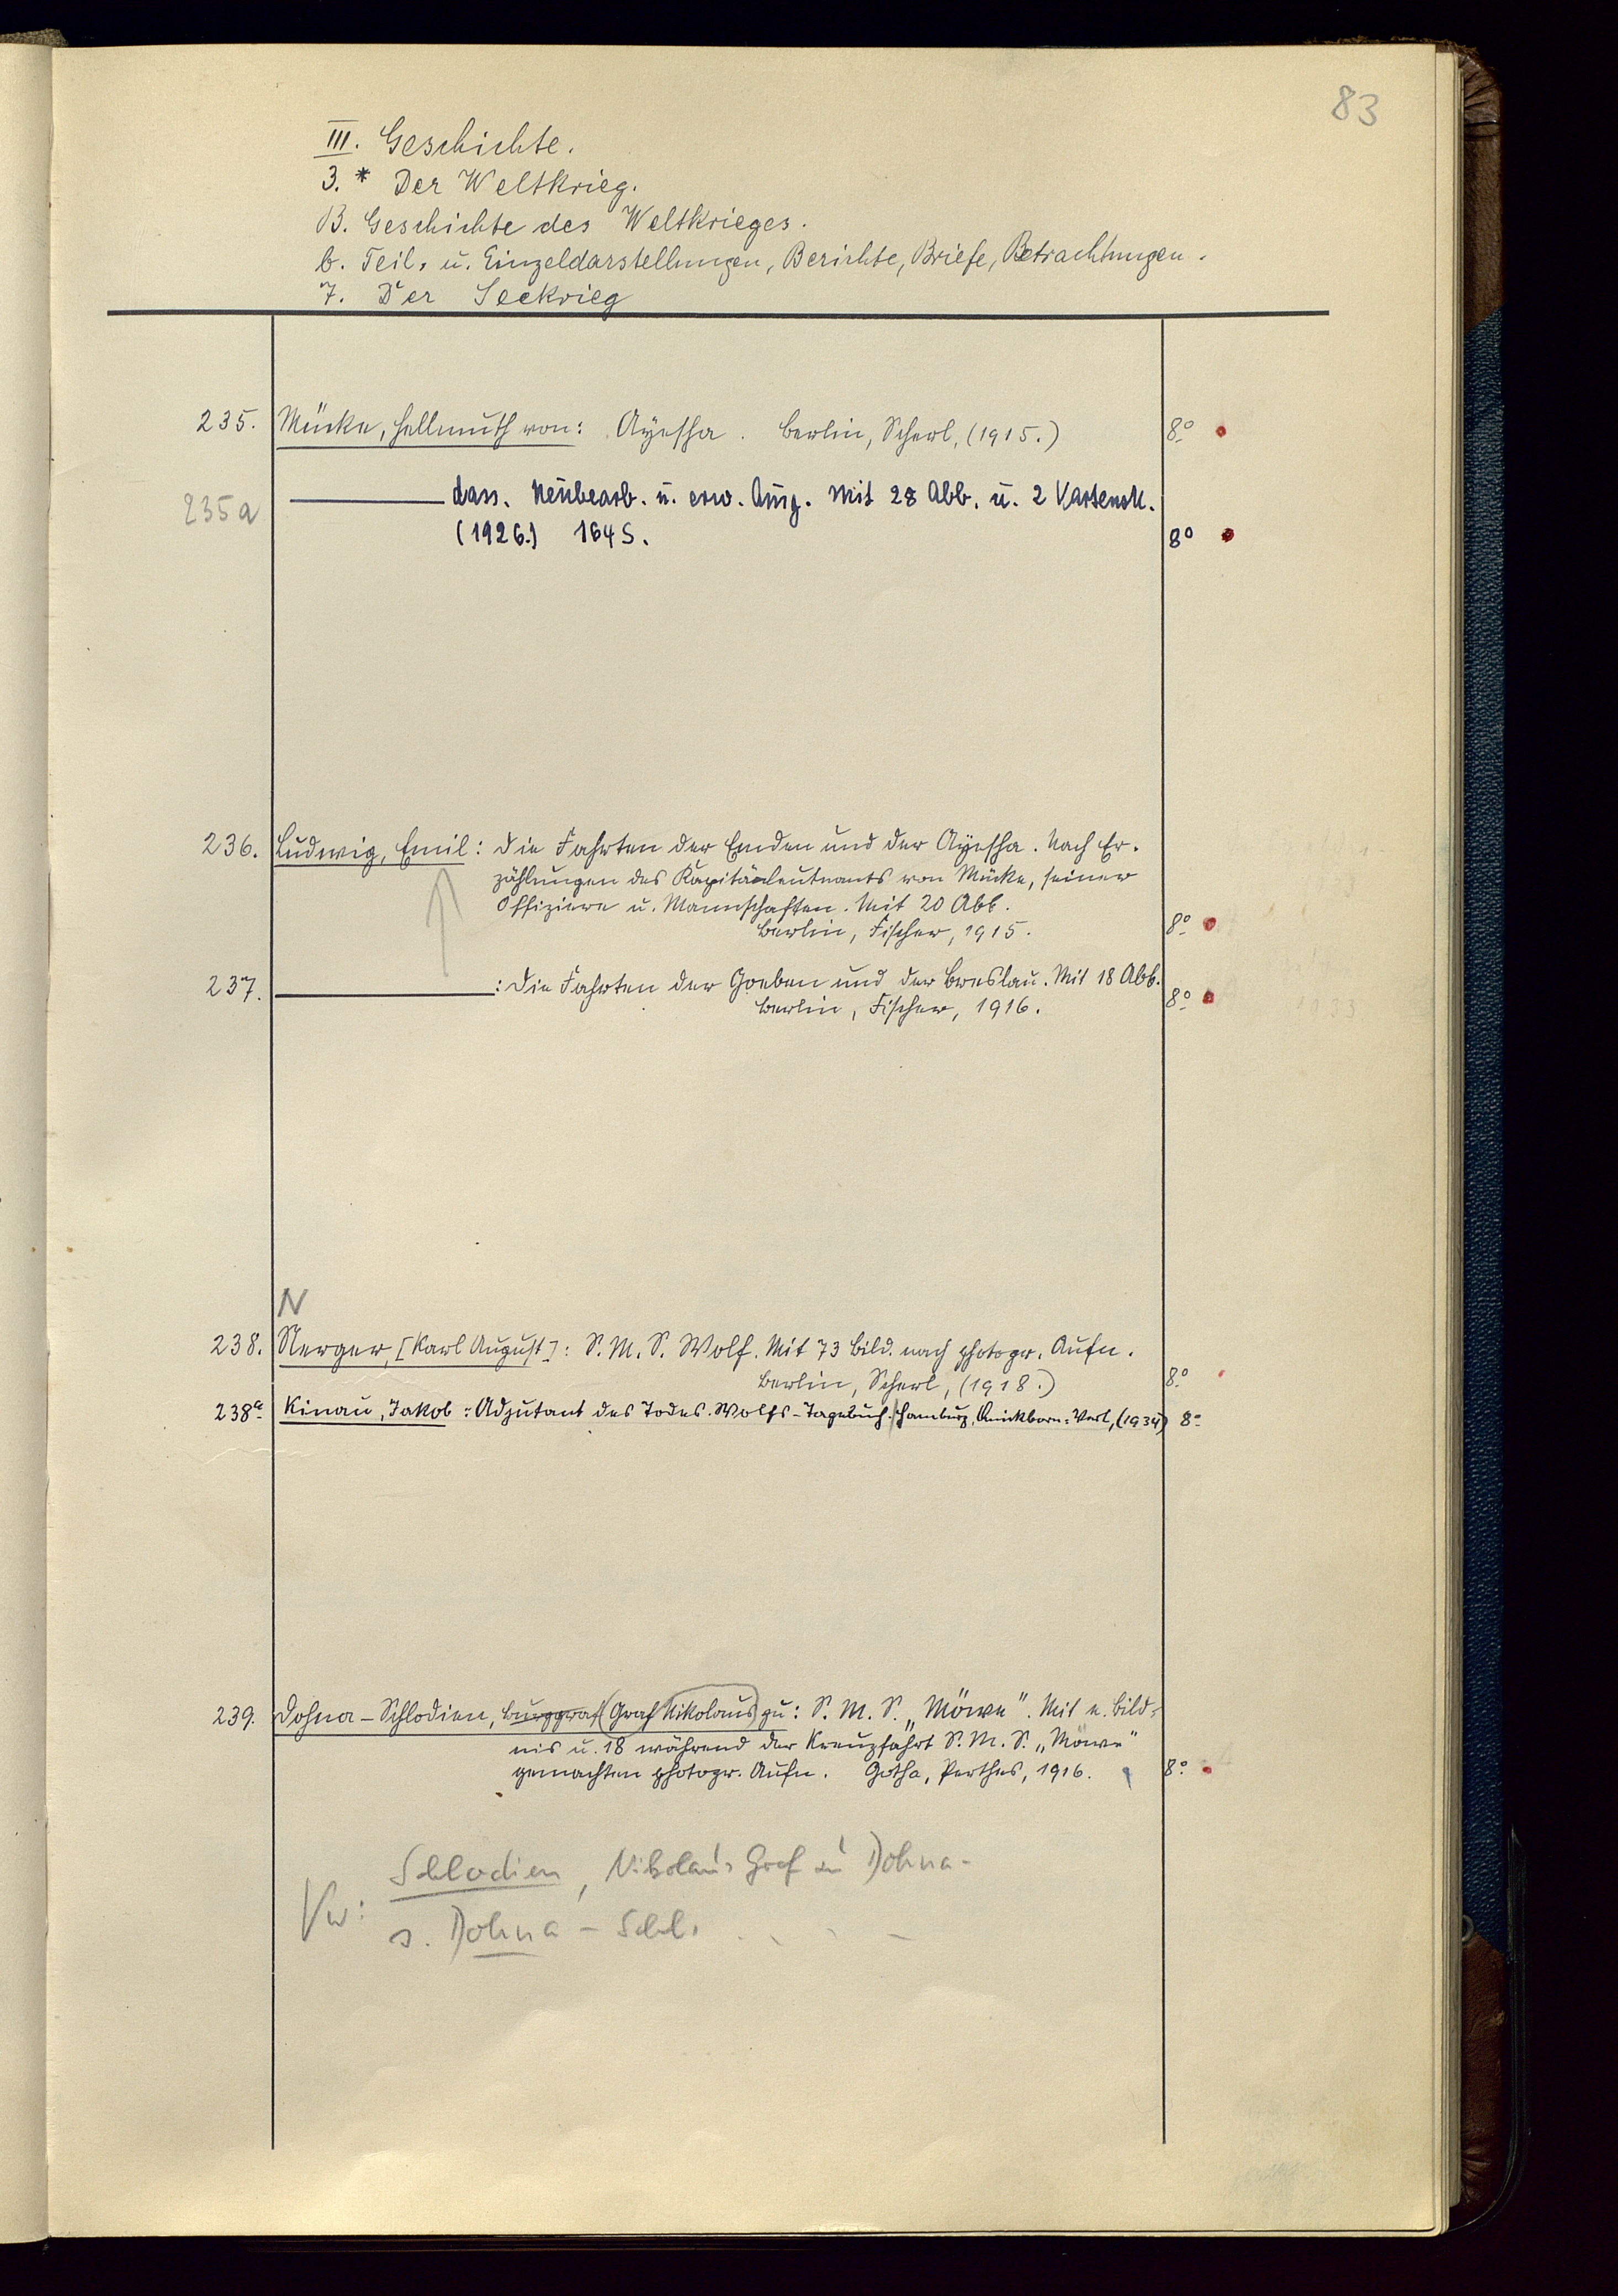 83
III. Geschichte.
3.* Der Weltkrieg.
B. Geschichte des Weltkrieges.
b. Teil- u. Einzeldarstellungen, Berichte, Briefe, Betrachtungen.
7. Der Seekrieg
235. Mücke, Hellmuth von: Ayesha. Berlin, Scherl, (1915.) 8°
235a dass. Neubearb. u. erw. Ausg. Mit 28 Abb. u. 2 Kartensk.
(1926.) 164 S. 8°
236. Ludwig, Emil: Die Fahrten der Emden und der Ayesha. Nach Er-
zählungen des Kapitänleutnants von Mücke, seiner
Offiziere u. Mannschaften. Mit 20 Abb.
Berlin, Fischer, 1915. 8°
237. : Die Fahrten der Goeben und der Breslau. Mit 18 Abb.
Berlin, Fischer, 1916. 8°
N
238. Nerger, [Karl August]: S. M. S. Wolf. Mit 73 Bild. nach photogr. Aufn.
Berlin, Scherl, (1918.) 8°
238a Kinau, Jakob: Adjutant des Todes. Wolfs-Tagebuch. Hamburg, Quickborn-Verl, (1934) 8°
239. Dohna-Schlodien, Burggraf (Graf Nikolaus) zu: S. M. S. „Möwe". Mit e. Bild-
nis u. 18 während der Kreuzfahrt S. M. S. „Möwe"
gemachten photogr. Aufn. Gotha, Perthes, 1916. 8°
Vw: Schlodien, Nikolaus Graf zu Dohna-
s. Dohna-Schl.